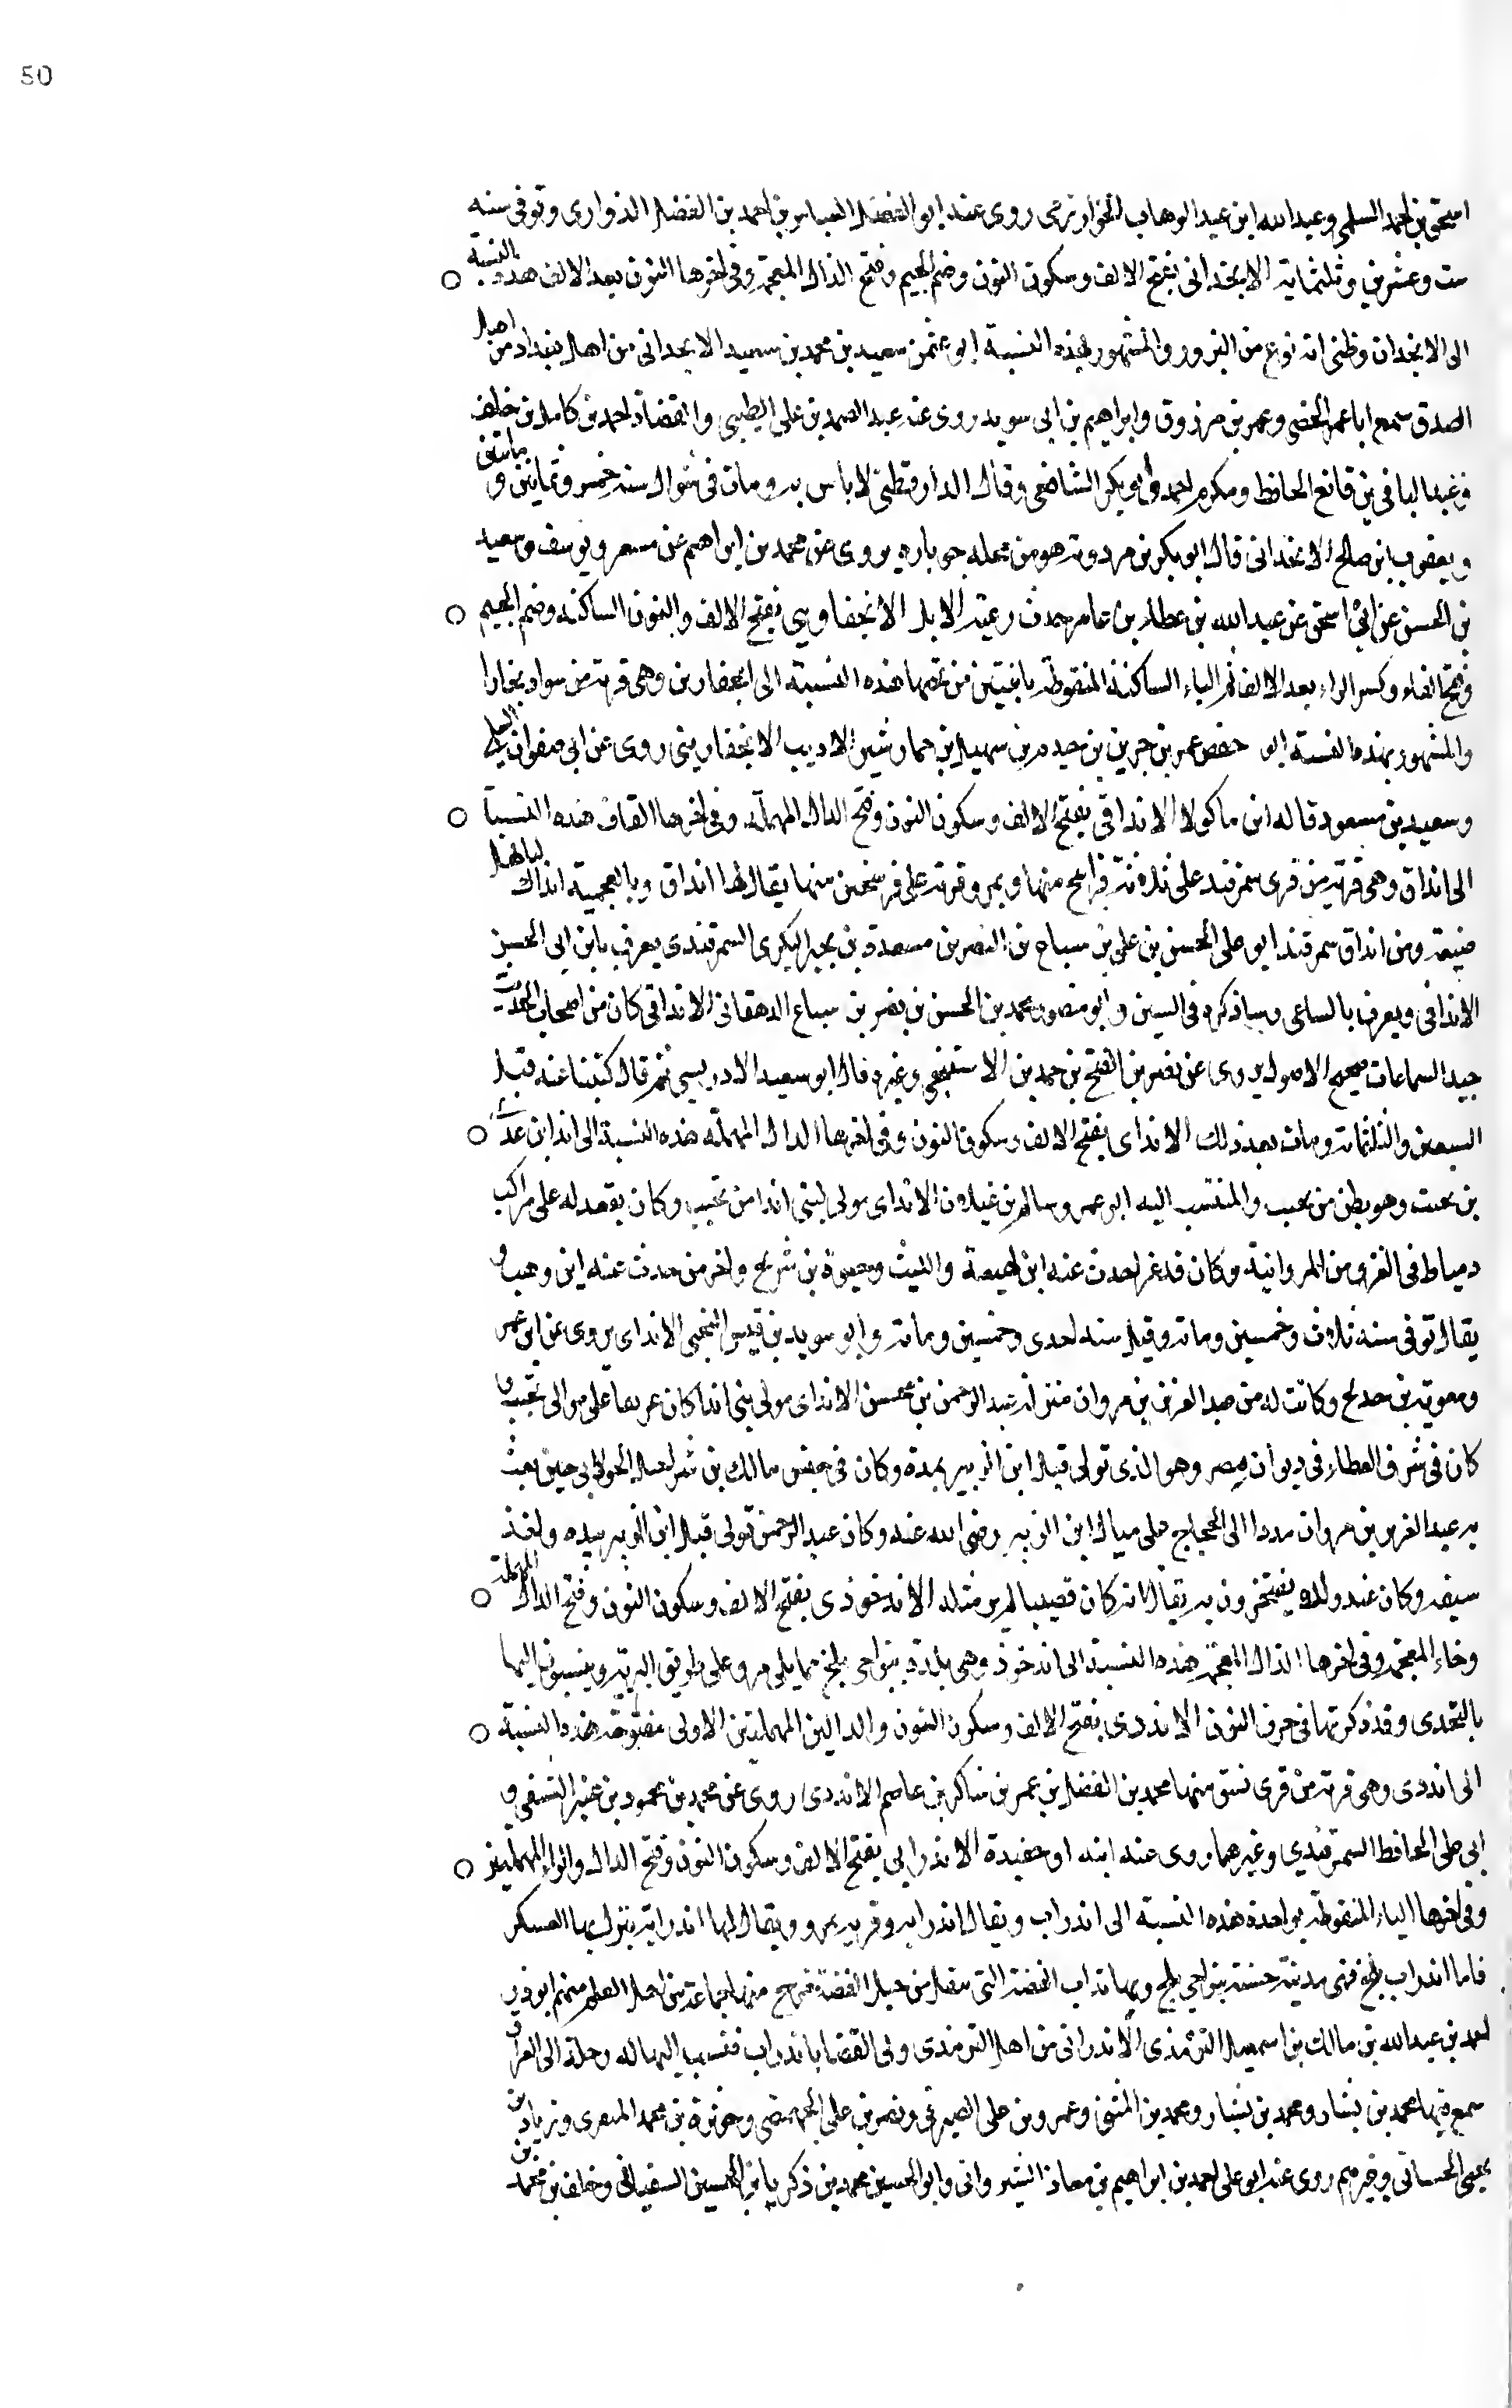 50
اسحق بن احمد السلمي وعبد الله ابن عبد الوهاب الخوارزمي روى عنه ابو الفضل العباس بن احمد بن الفضل الذوارى وتوفى سنه
ست وعشرين وثلثماية الانجذاني بفتح الالف وسكون النون وضم الجيم وفتح الذال المعجمة وفي اخرها النون بعد الالف هذه النسبة
الى الانجذان وظنى انه نوع من البزور والمشهور بهذه النسبة ابو عثمن سعيد بن محمد بن سعيد الانجذانى من اهل بغداد من اهل
الصدق سمع ابا عمر الحضى وعمر بن مرزوق وابراهيم بن ابى سويد روى عنه عبد الصمد بن على الطيبى والقضاة احمد بن كامل بن خلف
وعبد الباقي بن قانع الحافظ ومكرم احمد وابو بكر الشافعى وقال الدارقطنى لا باس به ومات فى شوال سنه خمس وثمانين ومائتين
ويعقوب ابن صالح الانجذانى قال ابو بكر بن مردويه هو من محله جوباره يروى عن محمد بن ابراهيم عن مسعر ويوسف وسعيد
بن الحسن عن ابى اسحق عن عبد الله بن عطاء بن عامر حديث رعية الابل الانجفاريني بفتح الالف والنون الساكنه وضم الجيم
وفتح الفاء وكسر الراء بعد الالف ثم الياء الساكنة المنقوطة باثنتين من تحتها هذه النسبة الى انجفارين وهى قرية من سواد بخارا
والمشهور بهذه النسبة ابو حفص عمر بن جرير بن حيدم بن سهيل بن حمار شير الاديب الانجفارينى روى عن ابى صفوان السلمى
وسعيد بن مسعود قاله ابن ماكولا الانداقى بفتح الالف وسكون النون وفتح الدال المهملة وفى اخرها القاف هذه النسبة
الى انداق وهى قرية من قرى سمرقند على ثلاثة فراسخ منها وبمرو قرية على فرسخين منها يقال لها انداق وبالعجمية انداك لياهل
ضيعة ومن انداق سمرقند ابو على الحسن بن على بن سباع بن النضر بن مسعدة بن بجير البكرى السمرقندى يعرف بابن ابى الحسن
الانداقى ويعرف بالساعى وساذكره فى السين وابو منصور محمد بن الحسن بن نصر بن سباع الدهقانى الانداقى كان من اصحاب الحديث
جيد السماعات صحيح الاصول يروى عن نصر بن الفتح بن حمد بن الاستيخنى وغيره قال ابو سعيد الادريسى ثم قال كتبنا عنه قبل
السبعين والثلثمائة ومات بعد ذلك الاندايى بفتح الالف وسكون النون وفى اخرها الدال المهملة هذه النسبة الى اندا بن عدى
بن تجيب وهو بطن من تجيب والمنتسب اليه ابو عمر وسالم بن غيلان الاندائى مولى لبنى اندا من تجيب وكان يقعد له على مراكب
دمياط فى الغزو من المروانية وكان قد غزا حدث عنه ابن لهيعة والليث وحيوة بن شريح واخر من حدث عنه ابن وهب و
يقال توفى سنه ثلاث وخمسين ومائة وقيل سنه احدى وخمسين ومائة وابو سويد بن قيس التجيبى الاندائى يروى عن ابن عمر
ومعوية بن حديج وكانت له من عبد العزيز بن مروان منزلة عبد الرحمن بن محسن الاندائى مولى بنى اندا كان عريفا على موالى تجيب و
كان فى شرف العطاء فى ديوان مصر وهو الذى تولى قتل ابن الزبير بمكة وكان فى جيش مالك بن شراحيل الخولانى حين بعث
به عبد العزيز بن مروان مددا الى الحجاج على قتال ابن الزبير رضى الله عنه وكان عبد الرحمن تولى قتل ابن الزبير بيده واخذ
سيفه وكان عند ولده يفتخرون به يقال انه كان قضيبا لم ير مثله الاندخوذى بفتح الالف وسكون النون وفتح الدال المهملة
وخاء المعجمة وفى اخرها الذال المعجمة هذه النسبة الى اندخوذ وهى بلدة بنواحى بلخ مما يلى مرو على طريق البرية وينسبون اليها
بالنخدى وقد ذكرتها فى حرف النون الانددى بفتح الالف وسكون النون والدالين المهملتين الاولى مفتوحة هذه النسبة
الى انددى وهى قرية من قرى نسف منها محمد بن الفضل بن عمر بن شاكر بن عاصم الانددى روى عن محمد بن محمود بن عنبر النسفى و
ابى على الحافظ السمرقندي وغيرهما روى عنه ابنه او حفيدة الاندرابى بفتح الالف وسكون النون وفتح الدال والراء المهملتين
وفى اخرها الباء المنقوطة بواحدة هذه النسبة الى اندراب ويقال اندرابه وقرية بمرو ويقال لها اندرابة ينزل بها العسكر
فاما اندراب بلخ فهى مدينة حسنة بنواحي بلخ وبها تذاب الفضة التى تنقل من جبل الفضة خرج منها جماعة من اهل العلم منهم ابو ذر
احمد بن عبد الله بن مالك بن اسمعيل الترمذى الاندرابى من اهل الترمذى ولى القضا باندراب فنسب اليها له رحلة الى العراق
سمع فيها محمد بن بشار ومحمد بن بشار ومحمد بن المثنى وعمرو بن على الصيرفى ونصر بن على الجهضمى وحوثرة بن محمد المنقرى وزياد بن
يحيى الحسانى وغيرهم روى عنه ابو على احمد بن ابراهيم بن معاذ الشيروانى وابو الحسين محمد بن زكريا بن الحسين السفيانى وخلف بن محمد بن